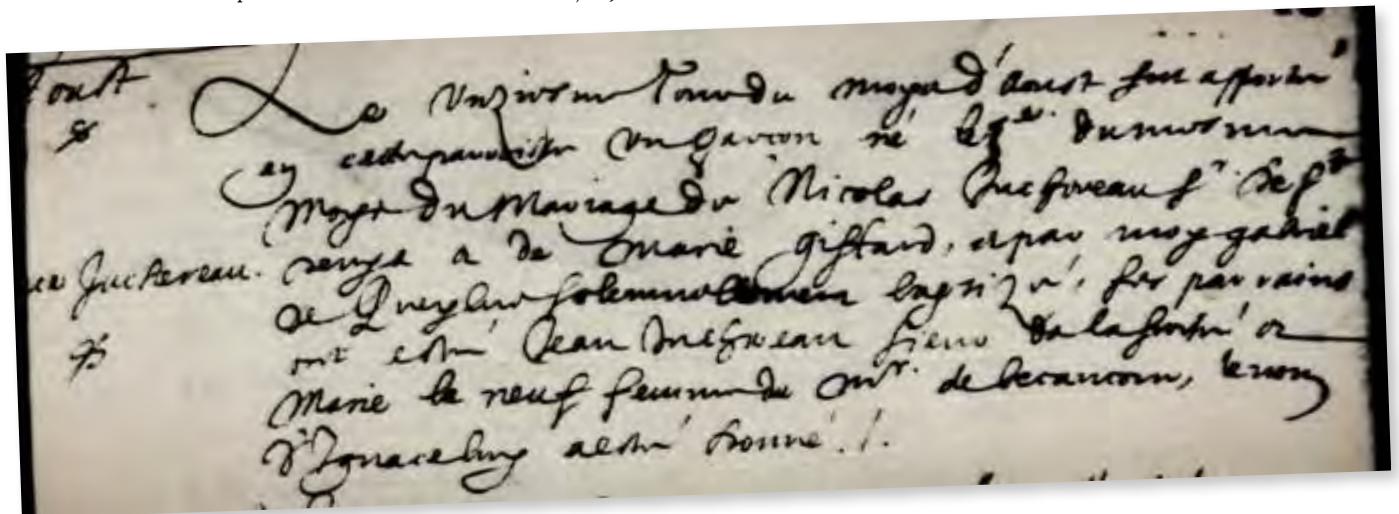 Aoust
Le Unziesme Jour du moys d'Aoust fut apporté
en cette parroisse Un Garcon né le du mesme
moys du Mariage de Nicolas Juchereau Sr de St
Denys & de Marie Giffard, & par moy gabriel
ce Juchereau.
de Queylus solemnellement baptizé, ses parrains
ont esté Jean Juchereau Sieur de la ferté &
Marie le neuf femme de Mr. de becancour, le nom
d'Ignace luy a esté donné.